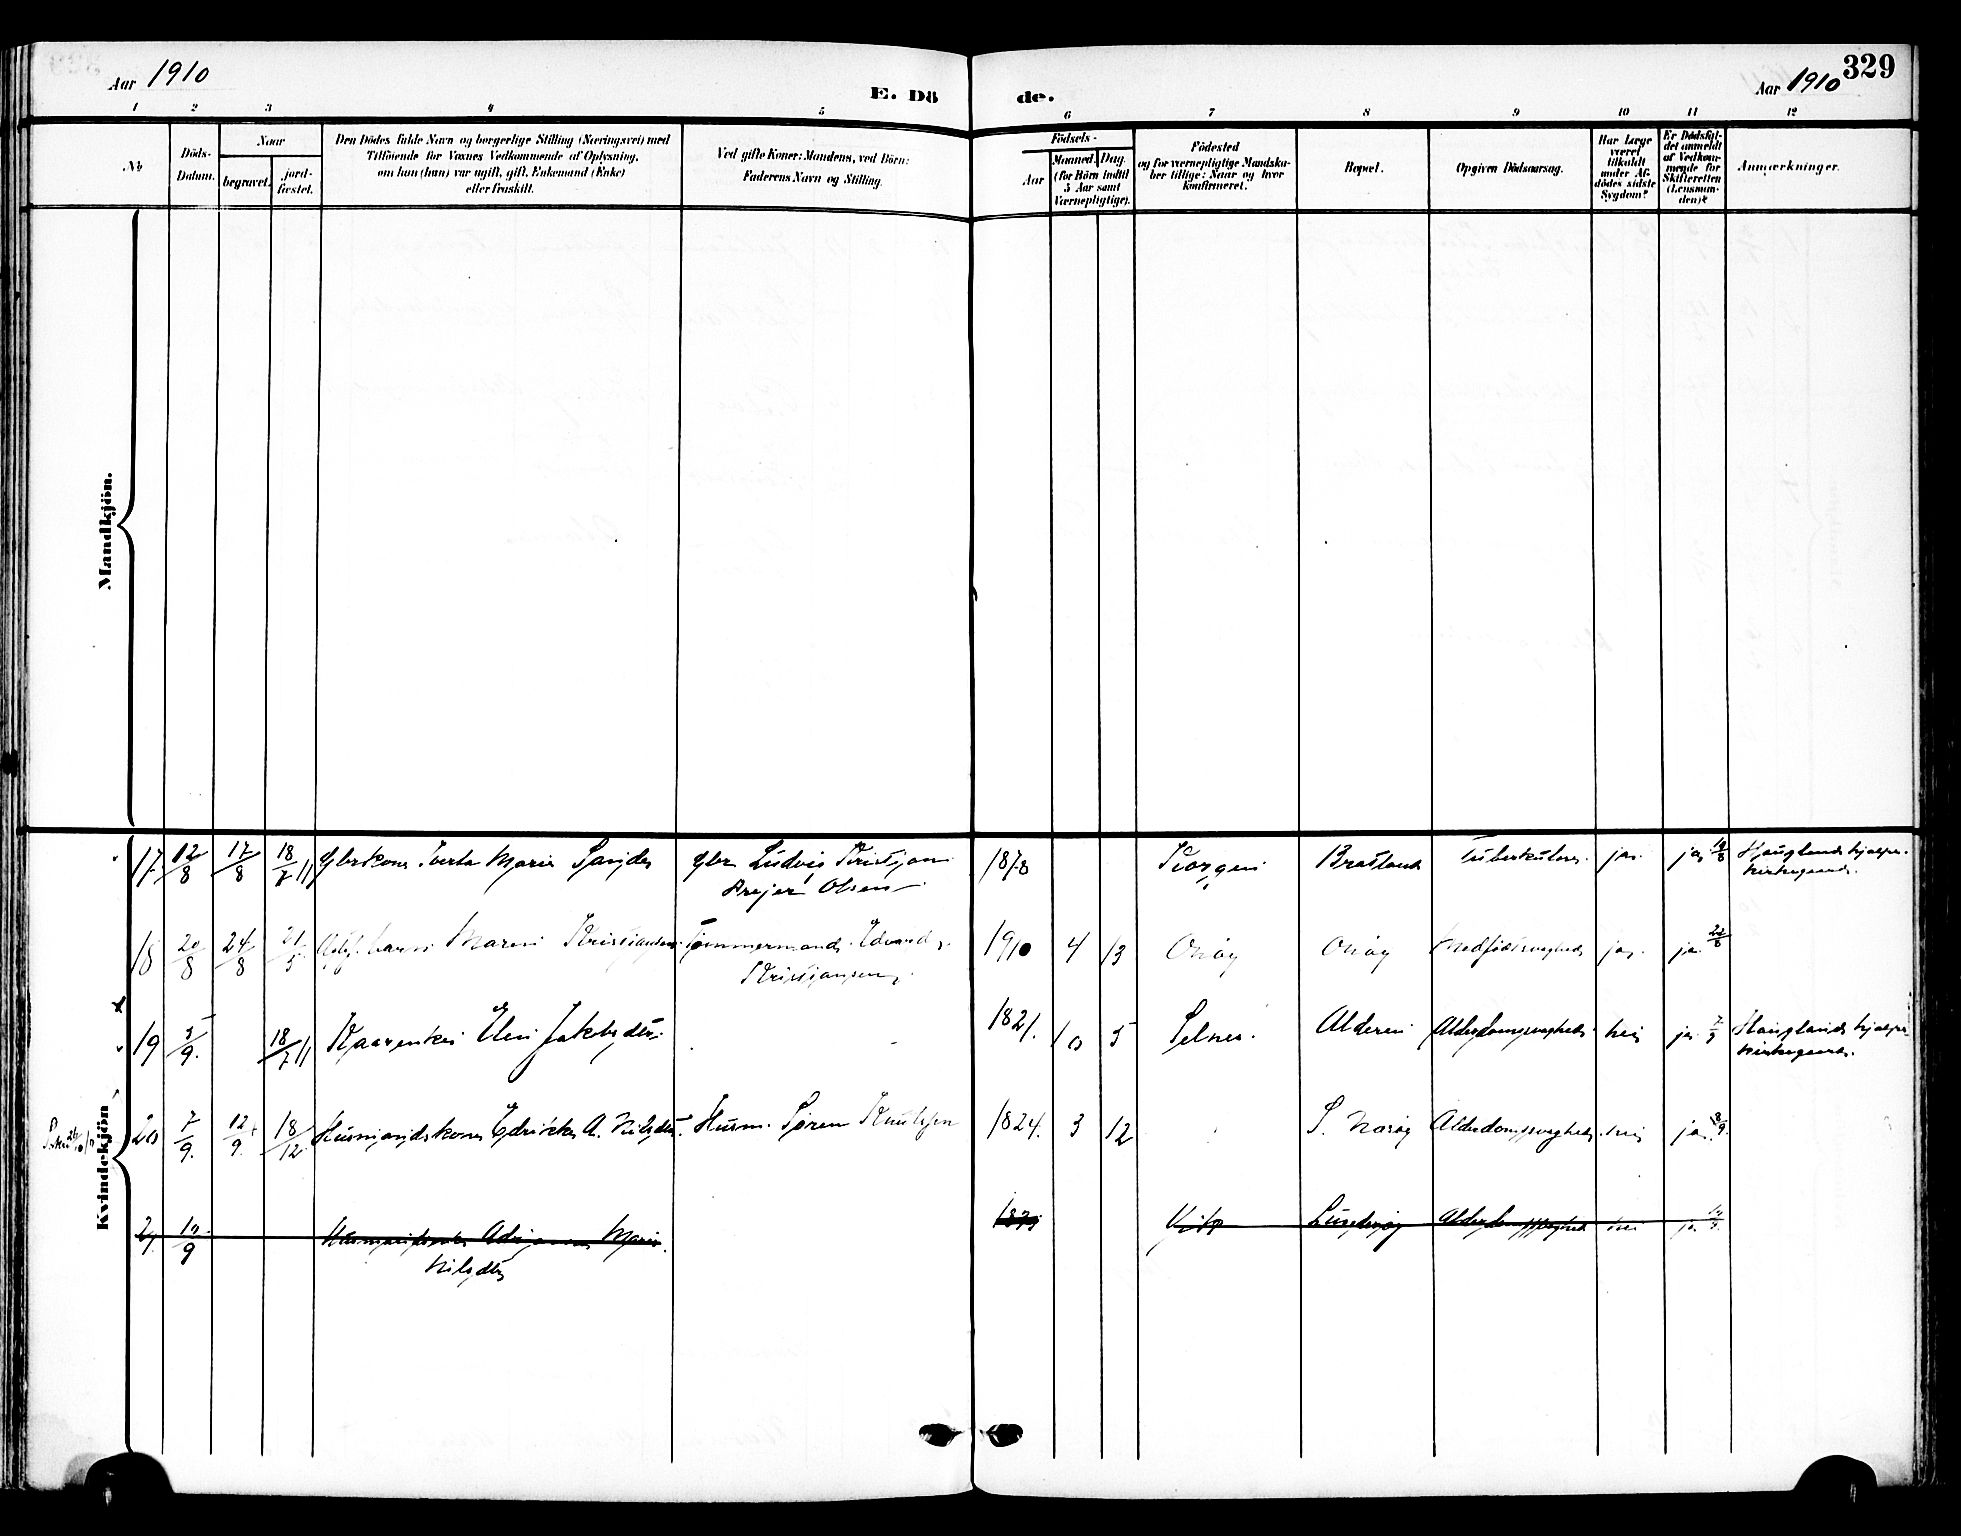 Aar 1910
E. Dö
de.
Aar 1910
329
1 2 3 4 5 6 7 8 9 10 11 12
No
Döds-
Datum.
Naar
begravet.
jord-
fæstet.
Den Dödes fulde Navn og borgerlige Stilling (Næringsvei) med
Tilföiende for Voxnes Vedkommende af Oplysning,
om han (hun) var ugift, gift, Enkemand (Enke)
eller fraskilt.
Ved gifte Koner: Mandens, ved Börn:
Faderens Navn og Stilling.
Födsels-
Aar
Maaned. Dag.
(for Börn indtil
5 Aar samt
Værnepligtige).
Födested
og for værnepligtige Mandska-
ber tillige: Naar og hvor
konfirmeret.
Bopæl.
Opgiven Dödsaarsag.
Har Læge
været
tilkaldt
under Af-
dödes sidste
Sygdom?
Er Dödsfal-
det anmeldt
af Vedkom-
mende for
Skifteretten
(Lensman-
den)?
Anmærkninger.
Mandkjön.
Kvindekjön
17 12/8 17/8 18/7 11 Maria gbr Ludvig Kristian 1878 Korgen Bratland Tuberkulose ja. ja 18/8 Hauglands hjælpe-
Prejer Olsen kirkegaard.
18 20/8 24/8 21/5 barn Maren Kristiansen Tömmermand Edvard 1910 4 13 Medfödt svaghed ja. ja.
Kristiansen
19 5/9. 18/7 11 Elen Jakobsdtr. 1821. 10 5 Selnes. Alderen Alderdomssvaghed nei ja. 7/9 Hauglands hjælpe-
kirkegaard.
20 7/9. 12/9. 18/12 Husmandskone A. Nilsdtr. Husm. Sören Knutsen 1824. 3 12 Alderdomssvaghed nei ja. 8/9.
21. 10/9 Maria Alderdomssvaghed nei ja
Nilsdtr